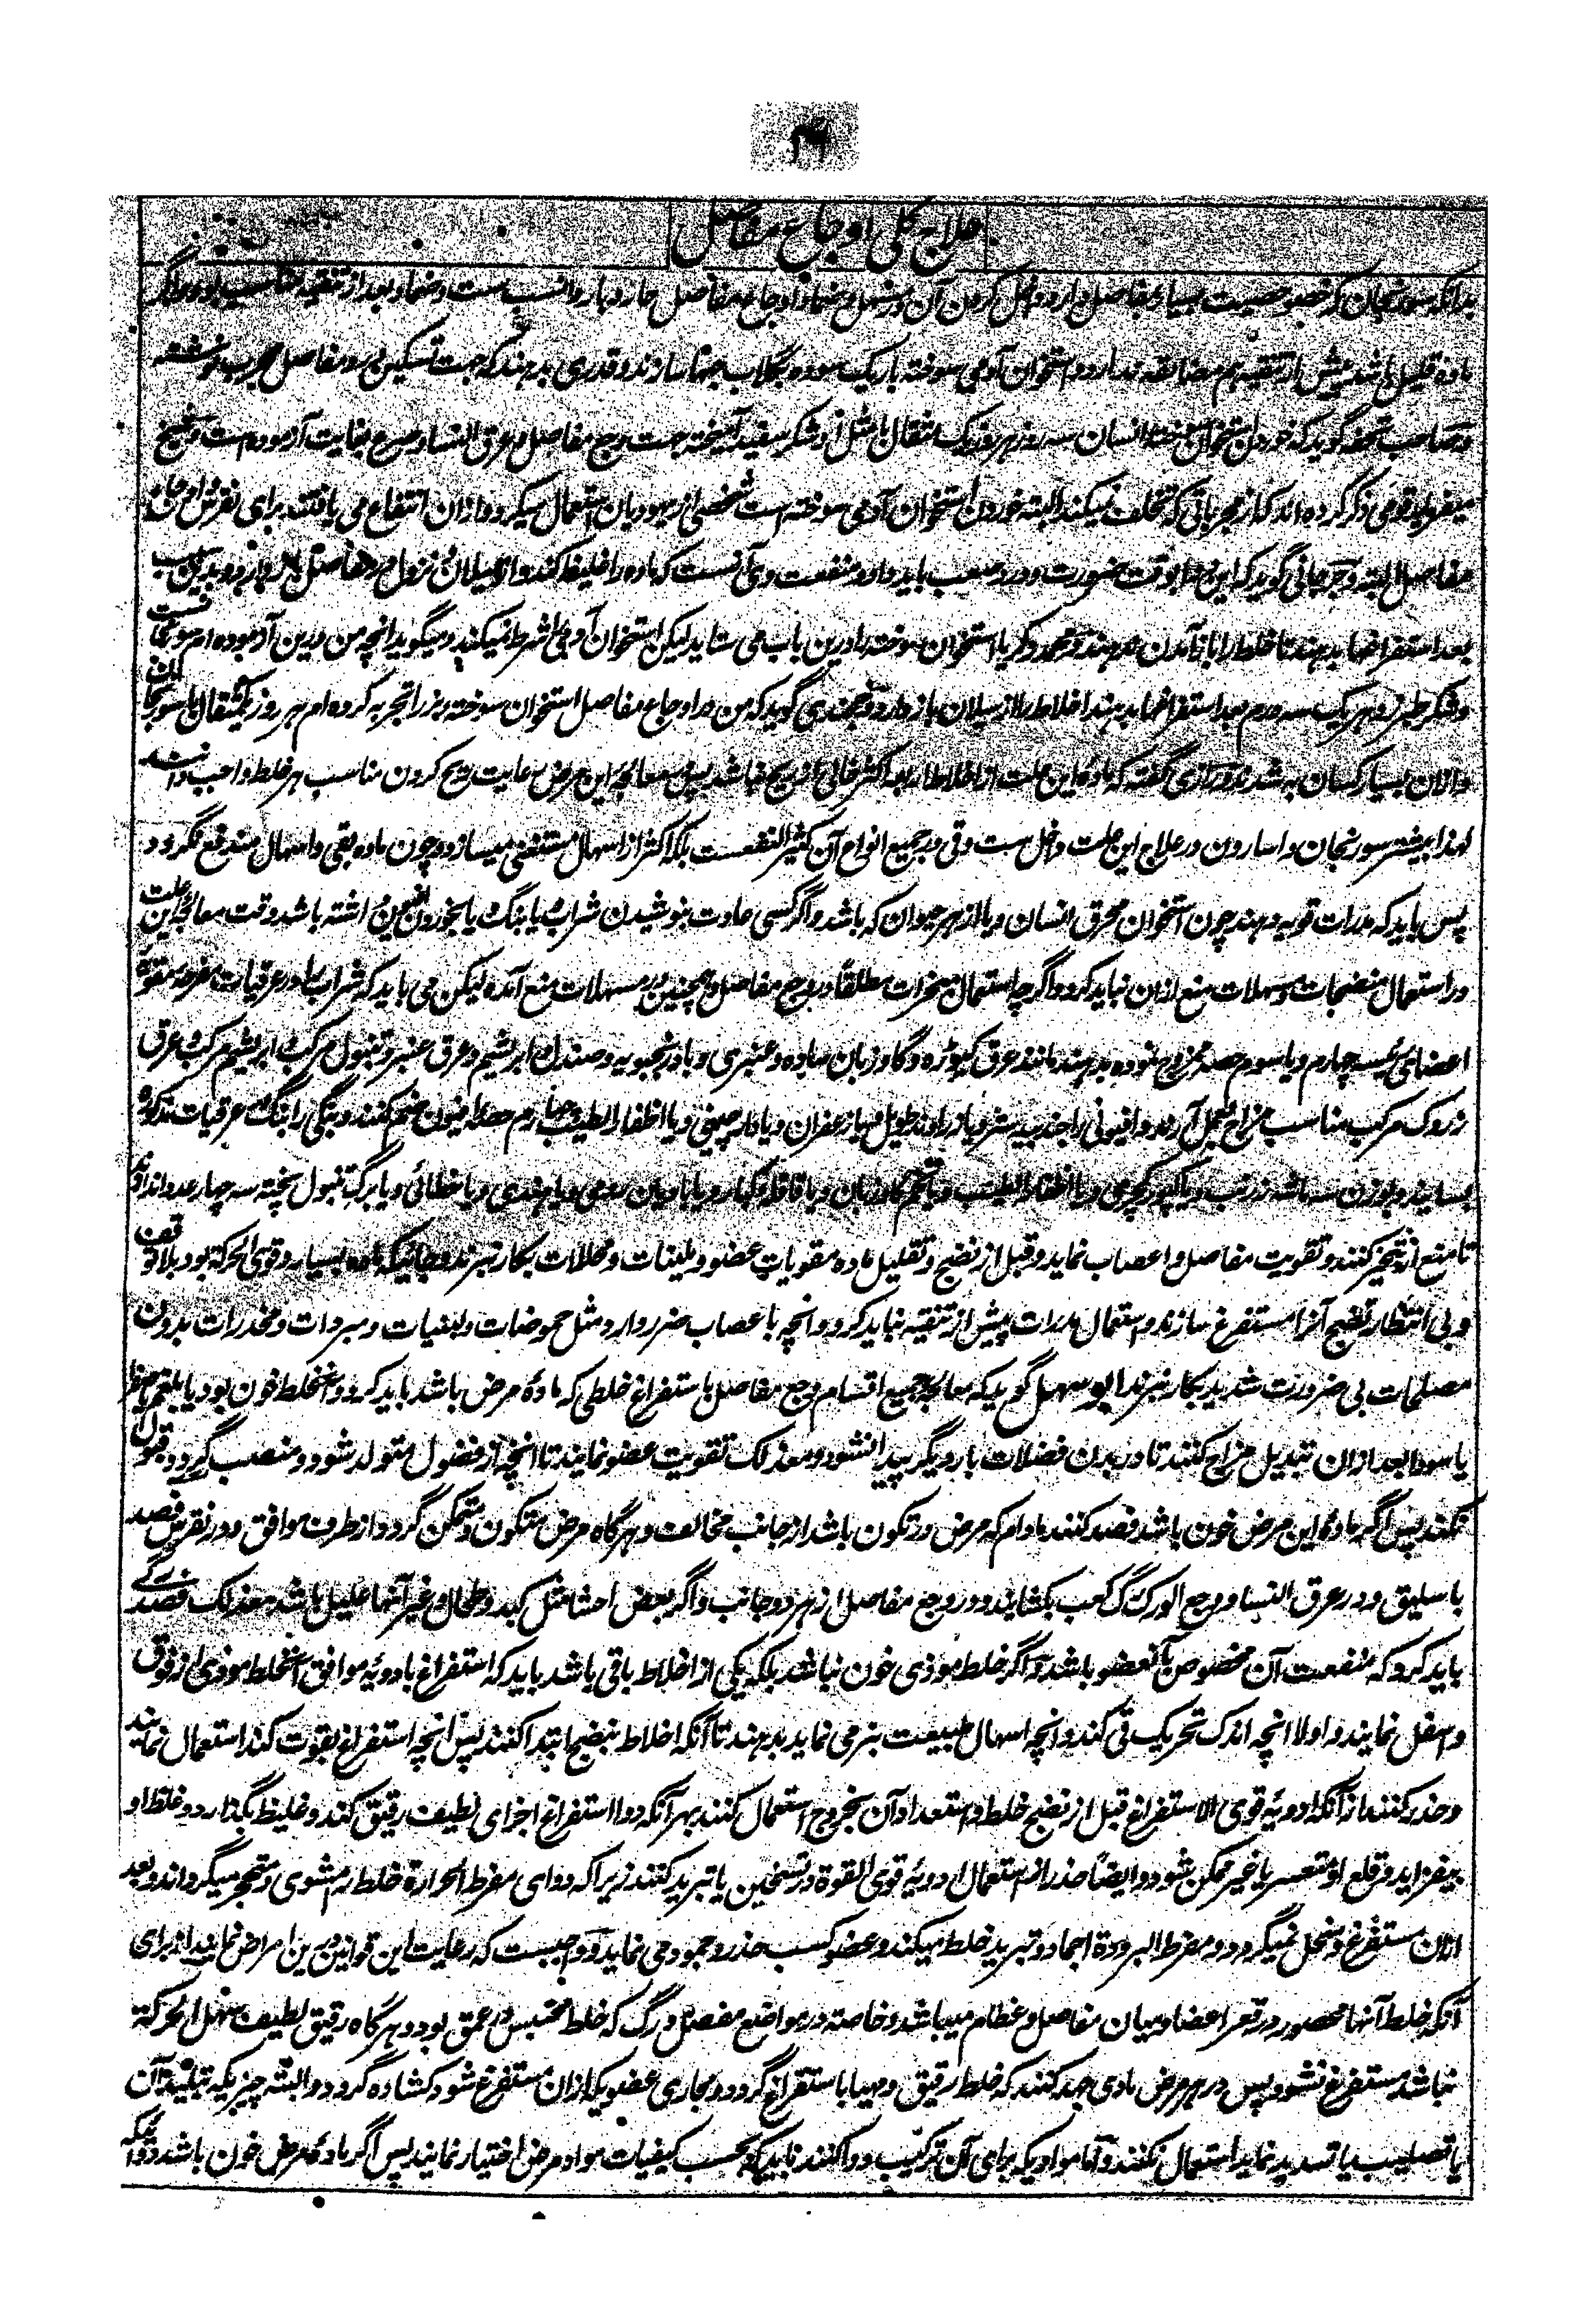 علاج کلی اوجاع مفاصل
بدانکه سورنجان که خصوصیت بسیار بمفاصل دارد داخل کردن آن در مسهل و ضماد اوجاع مفاصل حار و بارد انسب ست و ضماد بعد از تنقیه مناسب بود و اگر
ماده قلیل باشد پیش از تنقیه هم مضائقه ندارد و استخوان آدمی سوخته باریک سوده بگلاب حبها سازند و قدری بدهند که جهت تسکین درد مفاصل مجرب نوشته
و صاحب تحفه گوید که خوردن استخوان سوخته انسان سه روز هر روز یک مثقال با مثل او شکر سفید آمیخته جهت وجع مفاصل و عرق النسا و صرع بغایت آزموده است و شیخ
میفرماید قومی ذکر کرده اند که از مجرباتی که تخلف نمیکند البته خوردن استخوان آدمی سوخته است شخصی از یهودیان استعمال میکرد و ازان انتفاع می یافتند برای نقرس و اوجاع
مفاصل البته و جرجانی گوید که این دوا بوقت ضرورت و درد صعب باید داد و منفعت وی آنست که ماده را غلیظ کند و از سیلان و نزول در مفاصل باز دارد و بدین سبب
بعد استفراغها بدهند تا خلط را باز آمدن ندهند و محمد زکریا استخوان سوخته را درین باب می ستاید لیکن استخوان آدمی را شرط نمیکند و میگوید آنچه من درین آزموده ام سورنجان ست
و شکر طبرزد هر یک سه درم بعد استفراغها بدهند اخلاط را از سیلان باز دارد و خجندی گوید که من در اوجاع مفاصل استخوان سوخته بز را تجربه کرده ام هر روز یکمثقال با سورنجان
و ازان بسیار کسان به شدند و رازی گفته که ماده این علت از اخلاط اربعه اکثر خالی از ریح نباشد پس در معالجه این مرض رعایت ریح کردن مناسب هر خلط واجب دانند
لهذا بیشتر سورنجان و اسارون در علاج این علت داخل ست و قی در جمیع انواع آن کثیر النفعست بلکه اکثر از اسهال مستغنی میسازد و چون ماده بقی و اسهال مندفع نگردد
پس باید که مدرات قویه دهند چون استخوان محرق انسان و یا از هر حیوان که باشد و اگر کسی عادت بنوشیدن شراب یا بنگ یا بخوردن افیون داشته باشد وقت معالجه این علت
در استعمال منضجات و مسهلات منع ازان نباید کرد و اگرچه استعمال مخدرات مطلقاً در وجع مفاصل و همچنین در مسهلات منع آمده لیکن می باید که شراب را در عرقیات مفرحه مقویه
اعضای رئیسه چهارم و یا سوم حصه ممزوج نموده بدهند مانند عرق کیوڑه و گاوزبان ساده و عنبری و بادرنجبویه و صندل و ابریشم و عرق عنبر و تنبول مرکب و ابریشم مرکب و عرق
زردک مرکب مناسب مزاج بعمل آرند و افیونی را جندبیدستر و یا زراوند طویل و یا زعفران و یا دارچینی و یا اظفار الطیب چهارم حصه افیون ضم کنند و بنگی را بنگ در عرقیات مذکوره
بسایند و بوزن سه ماشه زرنب و یا کپور کچری و یا اظفار الطیب و یا تخم گاوزبان و یا قاقله کبار و یا بادیان رومی و یا هندی و یا خطائی و یا برگ تنبول پخته سه چهار عدد اندازند
تا منع از تبخیر کنند و تقویت مفاصل و اعصاب نماید و قبل از نضج و تقلیل ماده مقویات عضو و ملینات و محللات بکار نبرند و جائیکه ماده بسیار و قوی الحرکة بود بلا توقف
و بی انتظار نضج آنرا مستفرغ سازند و استعمال مدرات پیش از تنقیه نباید کرد و آنچه باعصاب ضرر دارد مثل حموضات و لبنیات و مبردات و مخدرات بدون
مصلحات بی ضرورت شدید بکار نبرند ابو سهل گوید که معالجه جمیع اقسام وجع مفاصل باستفراغ خلطی که ماده مرض باشد باید کرد و آنخلط خون بود یا بلغم یا صفرا
یا سودا بعد ازان تبدیل مزاج کنند تا در بدن فضلات بار دیگر پیدا نشود و معذلک تقویت عضو نمایند تا آنچه از فضول متولد شود و منصب گردد قبول
نکند پس اگر ماده این مرض خون باشد فصد کنند مادام که مرض در تکون باشد از جانب مخالف و هر گاه مرض متکون و متمکن گردد از طرف موافق و در نقرس فصد
باسلیق و در عرق النسا و وجع الورک رگ کعب بکشایند و در وجع مفاصل از هر دو جانب و اگر بعض احشا مثل کبد و طحال و غیر آنها علیل باشد معذلک فصد رگی
باید کرد که منفعت آن مخصوص بآنعضو باشد و اگر خلط موذی خون نباشد بلکه یکی از اخلاط باقی باشد باید که استفراغ بادویه موافق آنخلط موذی از فوق
و اسفل نمایند و اولا آنچه اندک تحریک قی کند و آنچه اسهال طبیعت بنرمی نماید بدهند تا آنکه اخلاط بنضج ابتدا کنند پس آنچه استفراغ بقوت کند استعمال نمایند
و حذر کنند از آنکه ادویه قوی الاستفراغ قبل از نضج خلط و استعداد آن بخروج استعمال کنند بهر آنکه دوا استفراغ اجزای لطیف رقیق کند و غلیظ بگذارد و غلظ او
بیفزاید و قلع او متعسر یا غیر ممکن شود و ایضاً حذر از استعمال ادویه قوی القوة در تسخین یا تبرید کنند زیرا که دوای مفرط الحرارة خلط را مشوی و متحجر میگرداند و بعد
ازان مستفرغ و منحل نمیگردد و مفرط البرودة اجماد و تبرید خلط میکند و عضو کسب خدر و جمود می نماید و واجبست که رعایت این قوانین درین امراض نمایند از برای
آنکه خلط آنها محصور در قعر اعضا و میان مفاصل و عظام میباشد و خاصه در مواضع مفصل ورک که خلط محتبس در عمق بود و هر گاه رقیق لطیف سهل الحرکة
نباشد مستفرغ نشود پس در هر مرض مادی جهد کنند که خلط رقیق و مهیا باستفراغ گردد و مجاری عضویکه ازان مستفرغ شود کشاده گردد و البته چیزیکه تبلید آن
یا تصلیب یا تسدید نماید استعمال نکنند و اما موادیکه برای آن ترکیب دوا کنند باید که بحسب کیفیات مواد مرض اختیار نمایند پس اگر ماده مرض خون باشد دوائیکه